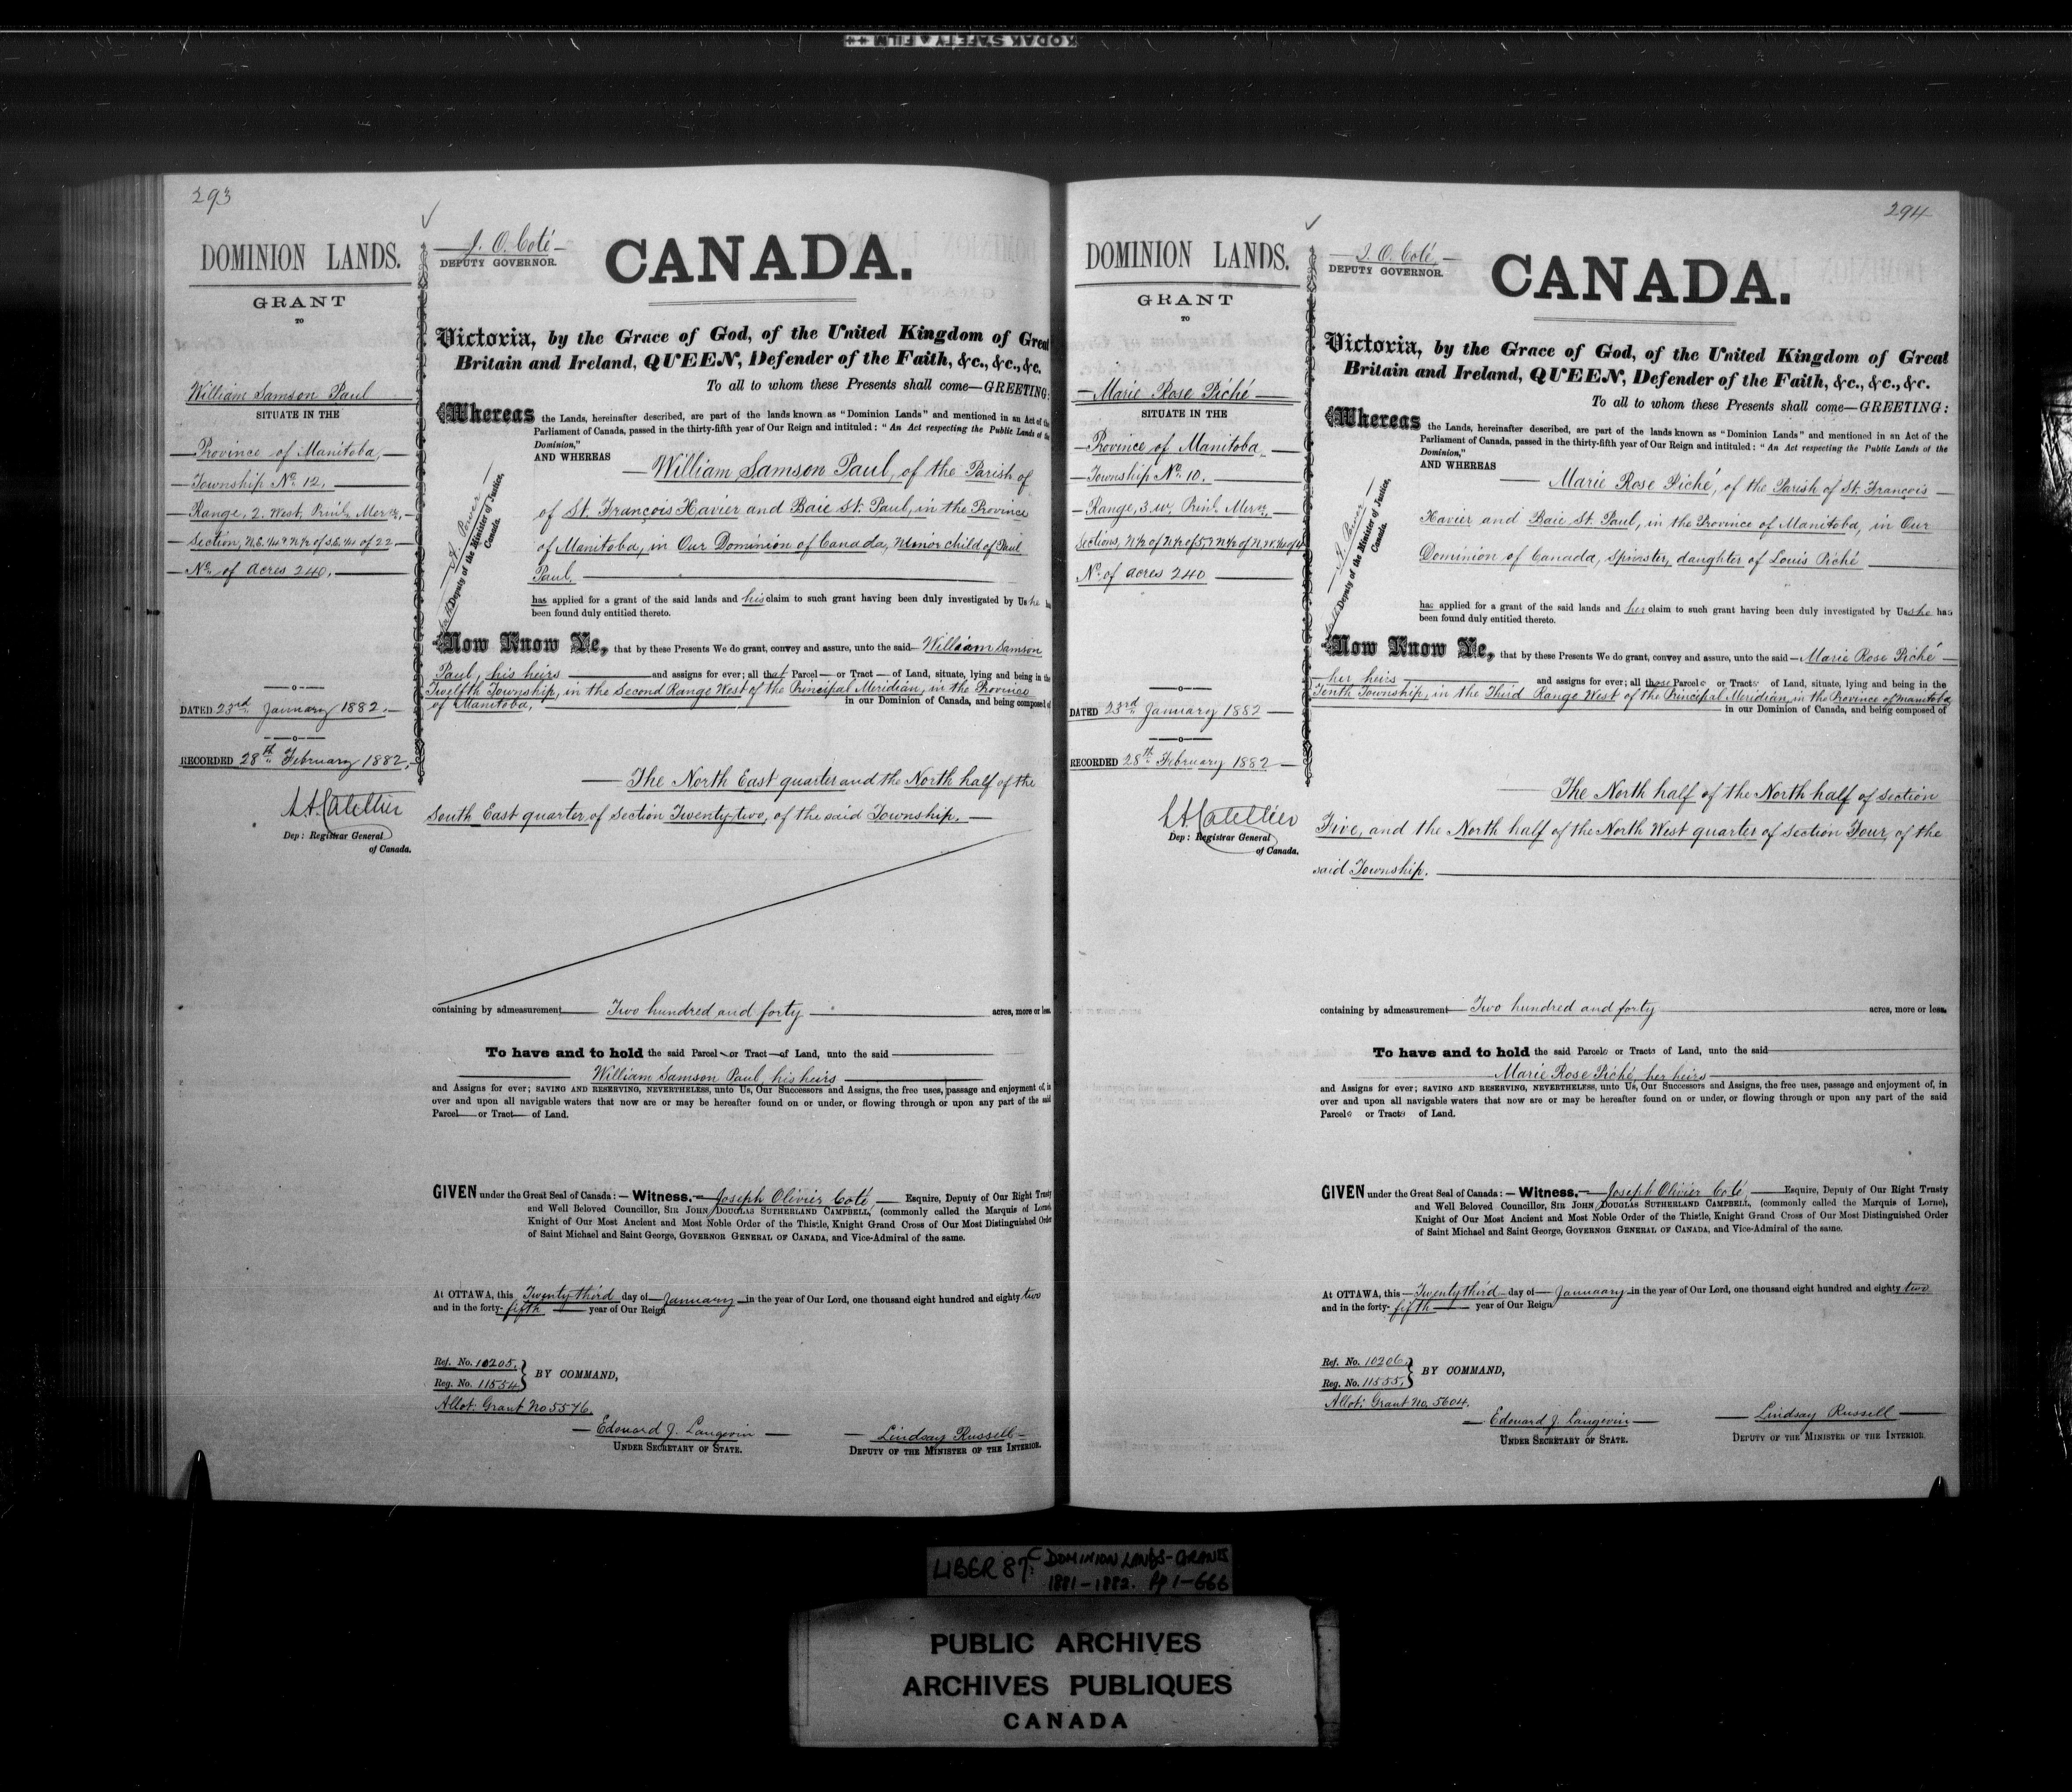 KODAK SAFETY FILM ++
293
DOMINION LANDS.
GRANT
TO
William Samson Paul
SITUATE IN THE
Province of Manitoba,
Township No. 12.
Range, 2. West, Prinl. Meren.
Section, N.E. 1/4 & N 1/2 of S.E. 1/4 of 22
No. of acres 240.
DATED 23rd January 1882.
RECORDED 28th February 1882.
L.A. Catellier
Dep: Registrar General
of Canada.
J. O. Coté
DEPUTY GOVERNOR.
CANADA.
Victoria, by the Grace of God, of the United Kingdom of Great
Britain and Ireland, QUEEN, Defender of the Faith, &c., &c., &c.
To all to whom these Presents shall come—GREETING:
Whereas the Lands, hereinafter described, are part of the lands known as "Dominion Lands" and mentioned in an Act of the
Parliament of Canada, passed in the thirty-fifth year of Our Reign and intituled: "An Act respecting the Public Lands of the
Dominion,"
AND WHEREAS William Samson Paul, of the Parish of
of St. François Xavier and Baie St. Paul, in the Province
of Manitoba, in Our Dominion of Canada, Minor child of Paul
Paul,
A. Power
Deputy of the Minister of Justice,
Canada.
has applied for a grant of the said lands and his claim to such grant having been duly investigated by Us he has
been found duly entitled thereto.
Now Know Ye, that by these Presents We do grant, convey and assure, unto the said William Samson
Paul, his heirs and assigns for ever; all that Parcel or Tract of Land, situate, lying and being in the
Twelfth Township, in the Second Range West of the Principal Meridian, in the Province
of Manitoba, in our Dominion of Canada, and being composed of
The North East quarter and the North half of the
South East quarter of Section Twenty-two, of the said Township.
containing by admeasurement Two hundred and forty acres, more or less.
To have and to hold the said Parcel or Tract of Land, unto the said
William Samson Paul, his heirs
and Assigns for ever; SAVING AND RESERVING, NEVERTHELESS, unto Us, Our Successors and Assigns, the free uses, passage and enjoyment of, in
over and upon all navigable waters that now are or may be hereafter found on or under, or flowing through or upon any part of the said
Parcel or Tract of Land.
GIVEN under the Great Seal of Canada:—Witness.—Joseph Olivier Coté Esquire, Deputy of Our Right Trusty
and Well Beloved Councillor, SIR JOHN DOUGLAS SUTHERLAND CAMPBELL, (commonly called the Marquis of Lorne),
Knight of Our Most Ancient and Most Noble Order of the Thistle, Knight Grand Cross of Our Most Distinguished Order
of Saint Michael and Saint George, GOVERNOR GENERAL OF CANADA, and Vice-Admiral of the same.
At OTTAWA, this Twenty third day of January in the year of Our Lord, one thousand eight hundred and eighty two
and in the forty-fifth year of Our Reign
Ref. No. 10205.
Reg. No. 11554
BY COMMAND,
Allot: Grant No 5576.
Edouard J. Langevin
UNDER SECRETARY OF STATE.
Lindsay Russell
DEPUTY OF THE MINISTER OF THE INTERIOR.
294
DOMINION LANDS.
GRANT
TO
Marie Rose Piché
SITUATE IN THE
Province of Manitoba,
Township No. 10.
Range, 3. W. Prinl. Meren.
Sections, N 1/2 of N 1/2 of 5 & N 1/2 of N.W. 1/4 of 4
No. of acres 240
DATED 23rd January 1882
RECORDED 28th February 1882
L.A. Catellier
Dep: Registrar General
of Canada.
J. O. Coté,
DEPUTY GOVERNOR.
CANADA.
Victoria, by the Grace of God, of the United Kingdom of Great
Britain and Ireland, QUEEN, Defender of the Faith, &c., &c., &c.
To all to whom these Presents shall come—GREETING:
Whereas the Lands, hereinafter described, are part of the lands known as "Dominion Lands" and mentioned in an Act of the
Parliament of Canada, passed in the thirty-fifth year of Our Reign and intituled: "An Act respecting the Public Lands of the
Dominion,"
AND WHEREAS Marie Rose Piché, of the Parish of St. François
Xavier and Baie St. Paul, in the Province of Manitoba, in Our
Dominion of Canada, Spinster, daughter of Louis Piché
A. Power
Deputy of the Minister of Justice,
Canada.
has applied for a grant of the said lands and her claim to such grant having been duly investigated by Us she has
been found duly entitled thereto.
Now Know Ye, that by these Presents We do grant, convey and assure, unto the said Marie Rose Piché
her heirs and assigns for ever; all those Parcels or Tracts of Land, situate, lying and being in the
Tenth Township, in the Third Range West of the Principal Meridian, in the Province of Manitoba,
in our Dominion of Canada, and being composed of
The North half of the North half of Section
Five, and the North half of the North West quarter of Section Four, of the
said Township.
containing by admeasurement Two hundred and forty acres, more or less.
To have and to hold the said Parcels or Tracts of Land, unto the said
Marie Rose Piché, her heirs
and Assigns for ever; SAVING AND RESERVING, NEVERTHELESS, unto Us, Our Successors and Assigns, the free uses, passage and enjoyment of, in
over and upon all navigable waters that now are or may be hereafter found on or under, or flowing through or upon any part of the said
Parcels or Tracts of Land.
GIVEN under the Great Seal of Canada:—Witness.—Joseph Olivier Coté, Esquire, Deputy of Our Right Trusty
and Well Beloved Councillor, SIR JOHN DOUGLAS SUTHERLAND CAMPBELL, (commonly called the Marquis of Lorne),
Knight of Our Most Ancient and Most Noble Order of the Thistle, Knight Grand Cross of Our Most Distinguished Order
of Saint Michael and Saint George, GOVERNOR GENERAL OF CANADA, and Vice-Admiral of the same.
At OTTAWA, this Twenty third day of January in the year of Our Lord, one thousand eight hundred and eighty two
and in the forty-fifth year of Our Reign
Ref. No. 10206.
Reg. No. 11555.
BY COMMAND,
Allot: Grant No. 5604.
Edouard J. Langevin
UNDER SECRETARY OF STATE.
Lindsay Russell
DEPUTY OF THE MINISTER OF THE INTERIOR.
LIBER 87C: DOMINION LANDS-GRANTS
1881-1882. Pp 1-666
PUBLIC ARCHIVES
ARCHIVES PUBLIQUES
CANADA